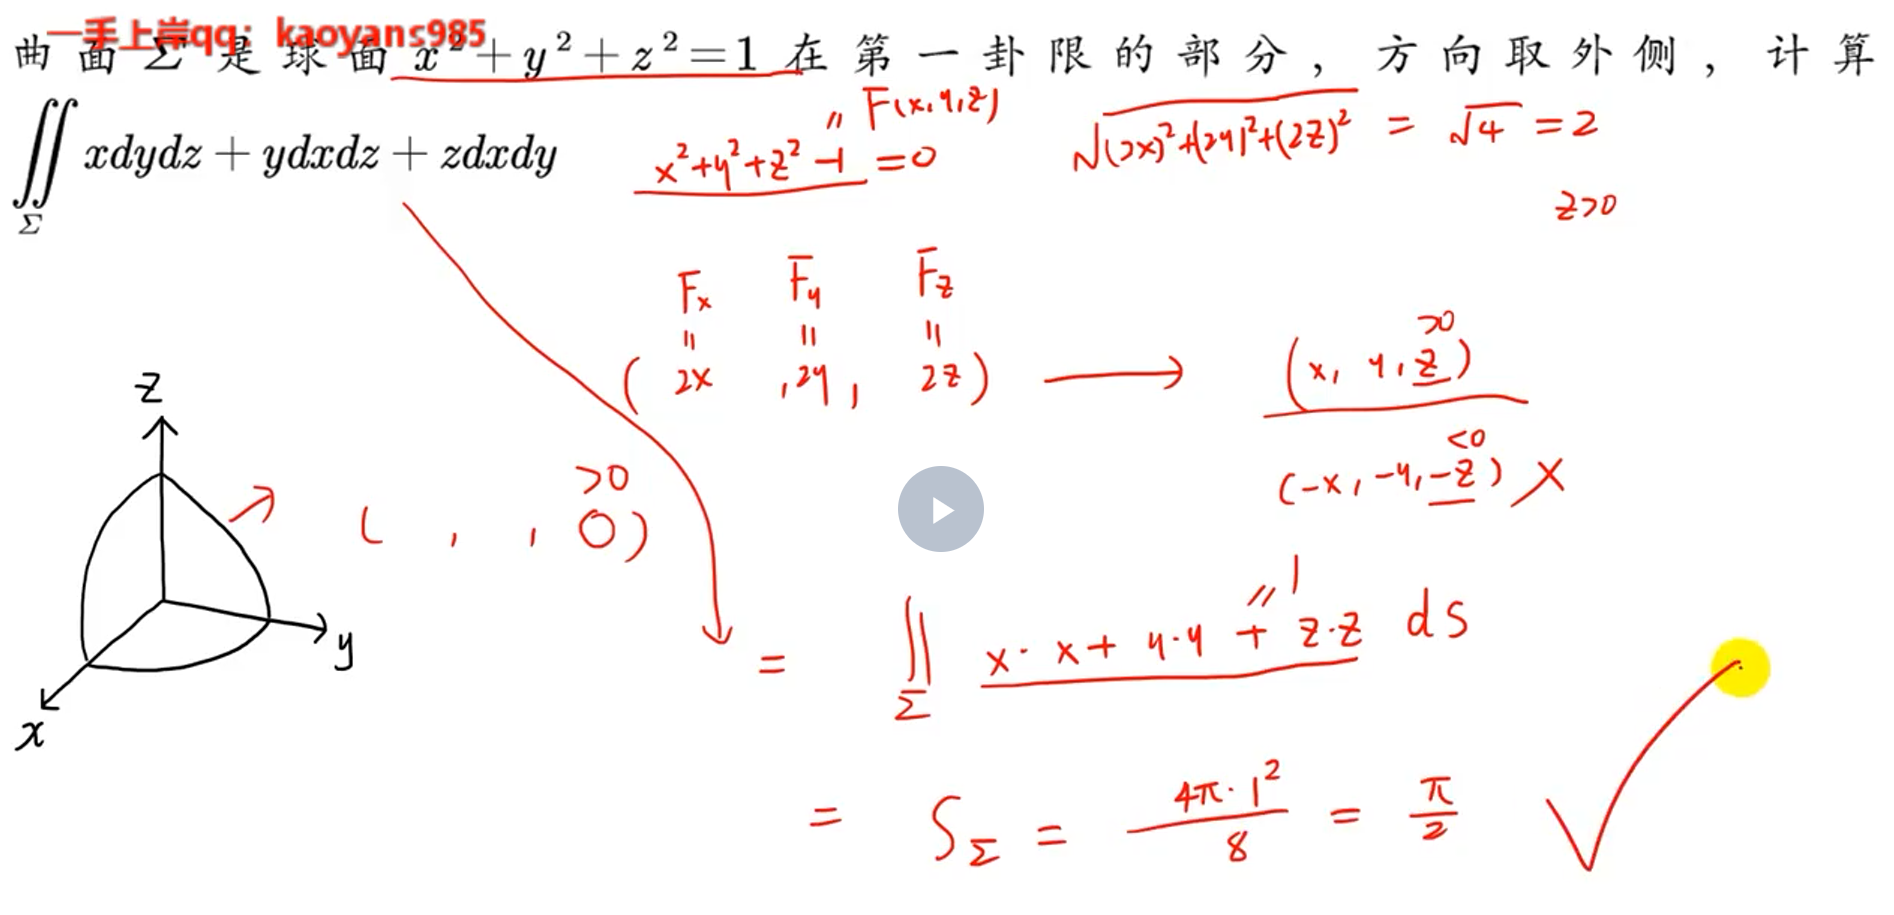 一手上岸qq：kaoyans985
曲面 Σ 是球面 x² + y² + z² = 1 在第一卦限的部分，方向取外侧，计算
∬ xdydz + ydxdz + zdxdy
Σ
〃 F(x,y,z)
x²+y²+z²-1 = 0
√((2x)²+(2y)²+(2z)²) = √4 = 2
z>0
Fx Fy Fz
〃 〃 〃
( 2x , 2y , 2z ) → (x, y, z)
>0
<0
(-x, -y, -z) X
z
y
x
>0
( , , 0 )
〃 1
= ∬ x·x + y·y + z·z dS
Σ
= S_Σ = 4π·1² / 8 = π/2